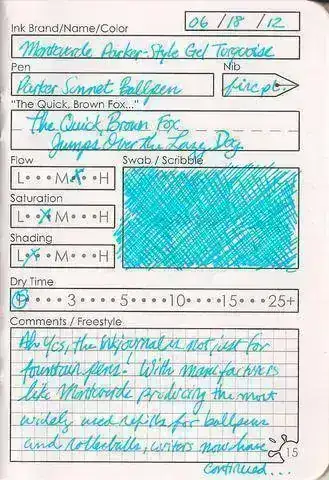 06 / 18 / 12
Ink Brand/Name/Color
Monteverde Parker-Style Gel Turquoise
Pen
Nib
Parker Sonnet Ballpen
fine pt.
"The Quick, Brown Fox..."
The Quick Brown Fox
Jumps Over the Lazy Dog
Flow
Swab / Scribble
L • • • M • X • H
Saturation
L • X • M • • • H
Shading
L • X • • M • • • H
Dry Time
• • • • 3 • • • • 5 • • • • 10 • • • • 15 • • • • 25+
Comments / Freestyle
Ah Yes, the Inkjournal is not just for
fountain pens! With manufacturers
like Monteverde producing the most
widely used refills for ballpens
and rollerballs, writers now have
15
continued...